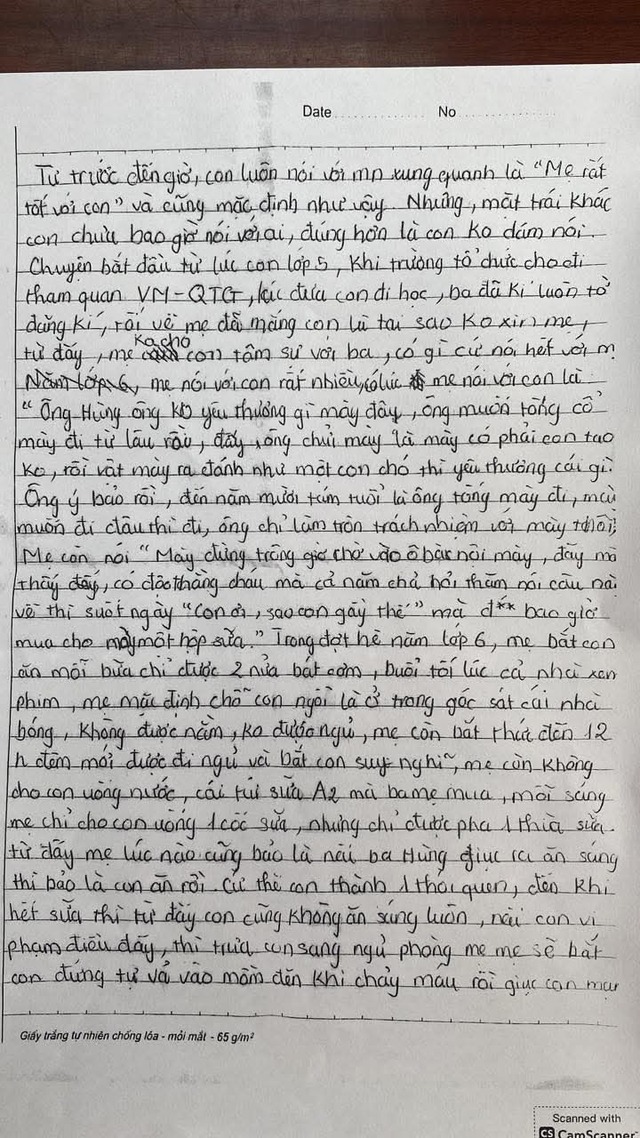 Date No
Từ trước đến giờ, con luôn nói với mn xung quanh là "Mẹ rất
tốt với con" và cũng mặc định như vậy. Nhưng, mặt trái khác
con chưa bao giờ nói với ai, đúng hơn là con ko dám nói.
Chuyện bắt đầu từ lúc con lớp 5, khi trường tổ chức cho đi
tham quan VM-QTG, lúc đưa con đi học, ba đã kí luôn tờ
đăng kí, rồi về mẹ đã mắng con là tại sao ko xin mẹ,
từ đấy, mẹ ko cho con tâm sự với ba, có gì cứ nói hết với m
Năm lớp 6, mẹ nói với con rất nhiều, có lúc mẹ nói với con là
"Ông Hùng ông ko yêu thương gì mày đâu, ông muốn tống cổ
mày đi từ lâu rồi, đấy, ông chửi mày là mày có phải con tao
ko, rồi vật mày ra đánh như một con chó thì yêu thương cái gì.
Ông ý bảo rồi, đến năm mười tám tuổi là ông tống mày đi, mày
muốn đi đâu thì đi, ông chỉ làm tròn trách nhiệm với mày thôi"
Mẹ còn nói "Mày đừng trông giờ chờ vào ô bà nội mày, đấy mà
thấy đấy, có đứa thằng cháu mà cả năm chả hỏi thăm nói câu nà
về thì suốt ngày "con ơi, sao con gầy thế" mà đ** bao giờ
mua cho mày một hộp sữa." Trong đợt hè năm lớp 6, mẹ bắt con
ăn mỗi bữa chỉ được 2 nửa bát cơm, buổi tối lúc cả nhà xem
phim, mẹ mặc định chỗ con ngồi là ở trong góc sát cái nhà
bóng, không được nằm, ko được ngủ, mẹ còn bắt thức đến 12
h đêm mới được đi ngủ và bắt con suy nghĩ, mẹ còn không
cho con uống nước, cái túi sữa A2 mà ba mẹ mua, mỗi sáng
mẹ chỉ cho con uống 1 cốc sữa, nhưng chỉ được pha 1 thìa sữa.
từ đấy mẹ lúc nào cũng bảo là nếu ba Hùng giục ra ăn sáng
thì bảo là con ăn rồi. Cứ thế con thành 1 thói quen, đến khi
hết sữa thì từ đấy con cũng không ăn sáng luôn, nếu con vi
phạm điều đấy, thì trưa con sang ngủ phòng mẹ mẹ sẽ bắt
con đứng tự vả vào mồm đến khi chảy máu rồi giục con mau
Giấy trắng tự nhiên chống lóa - mỏi mắt - 65 g/m²
Scanned with
CS CamScanner